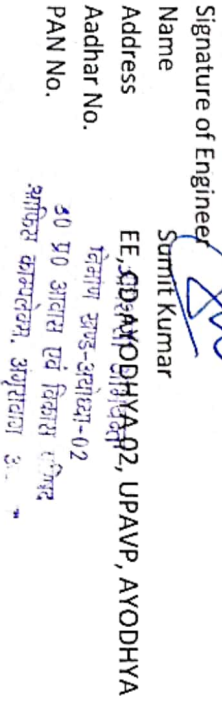 Signature of Engineer
Name Sumit Kumar
Address EE, CD-AYODHYA-02, UPAVP, AYODHYA
Aadhar No.
PAN No.
निर्माण खण्ड-अयोध्या-02
उ0 प्र0 आवास एवं विकास परिषद
आफिस काम्पलेक्स,